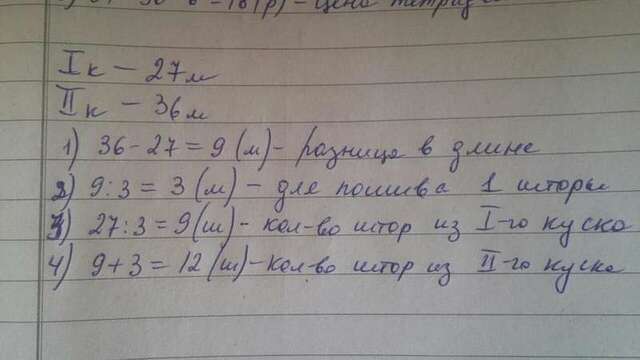 цена тетради
I к – 27 м
II к – 36 м
1) 36 – 27 = 9 (м) – разница в длине
2) 9 : 3 = 3 (м) – для пошива 1 шторы
3) 27 : 3 = 9 (ш) – кол-во штор из I-го куска
4) 9 + 3 = 12 (ш) – кол-во штор из II-го куска